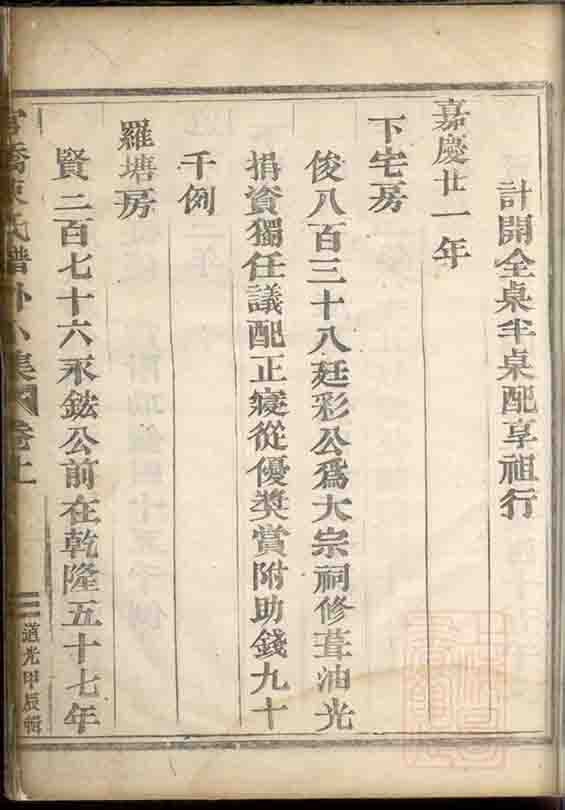 計開全桌半桌配享祖行
嘉慶廿一年
下宅房
俊八百三十八廷彩公爲大宗祠修葺油光
捐資獨任議配正寢從優奬賞附助錢九十
千例
羅塘房
賢二百七十六永鋐公前在乾隆五十七年
氏譜外小集 卷上
道光甲辰輯